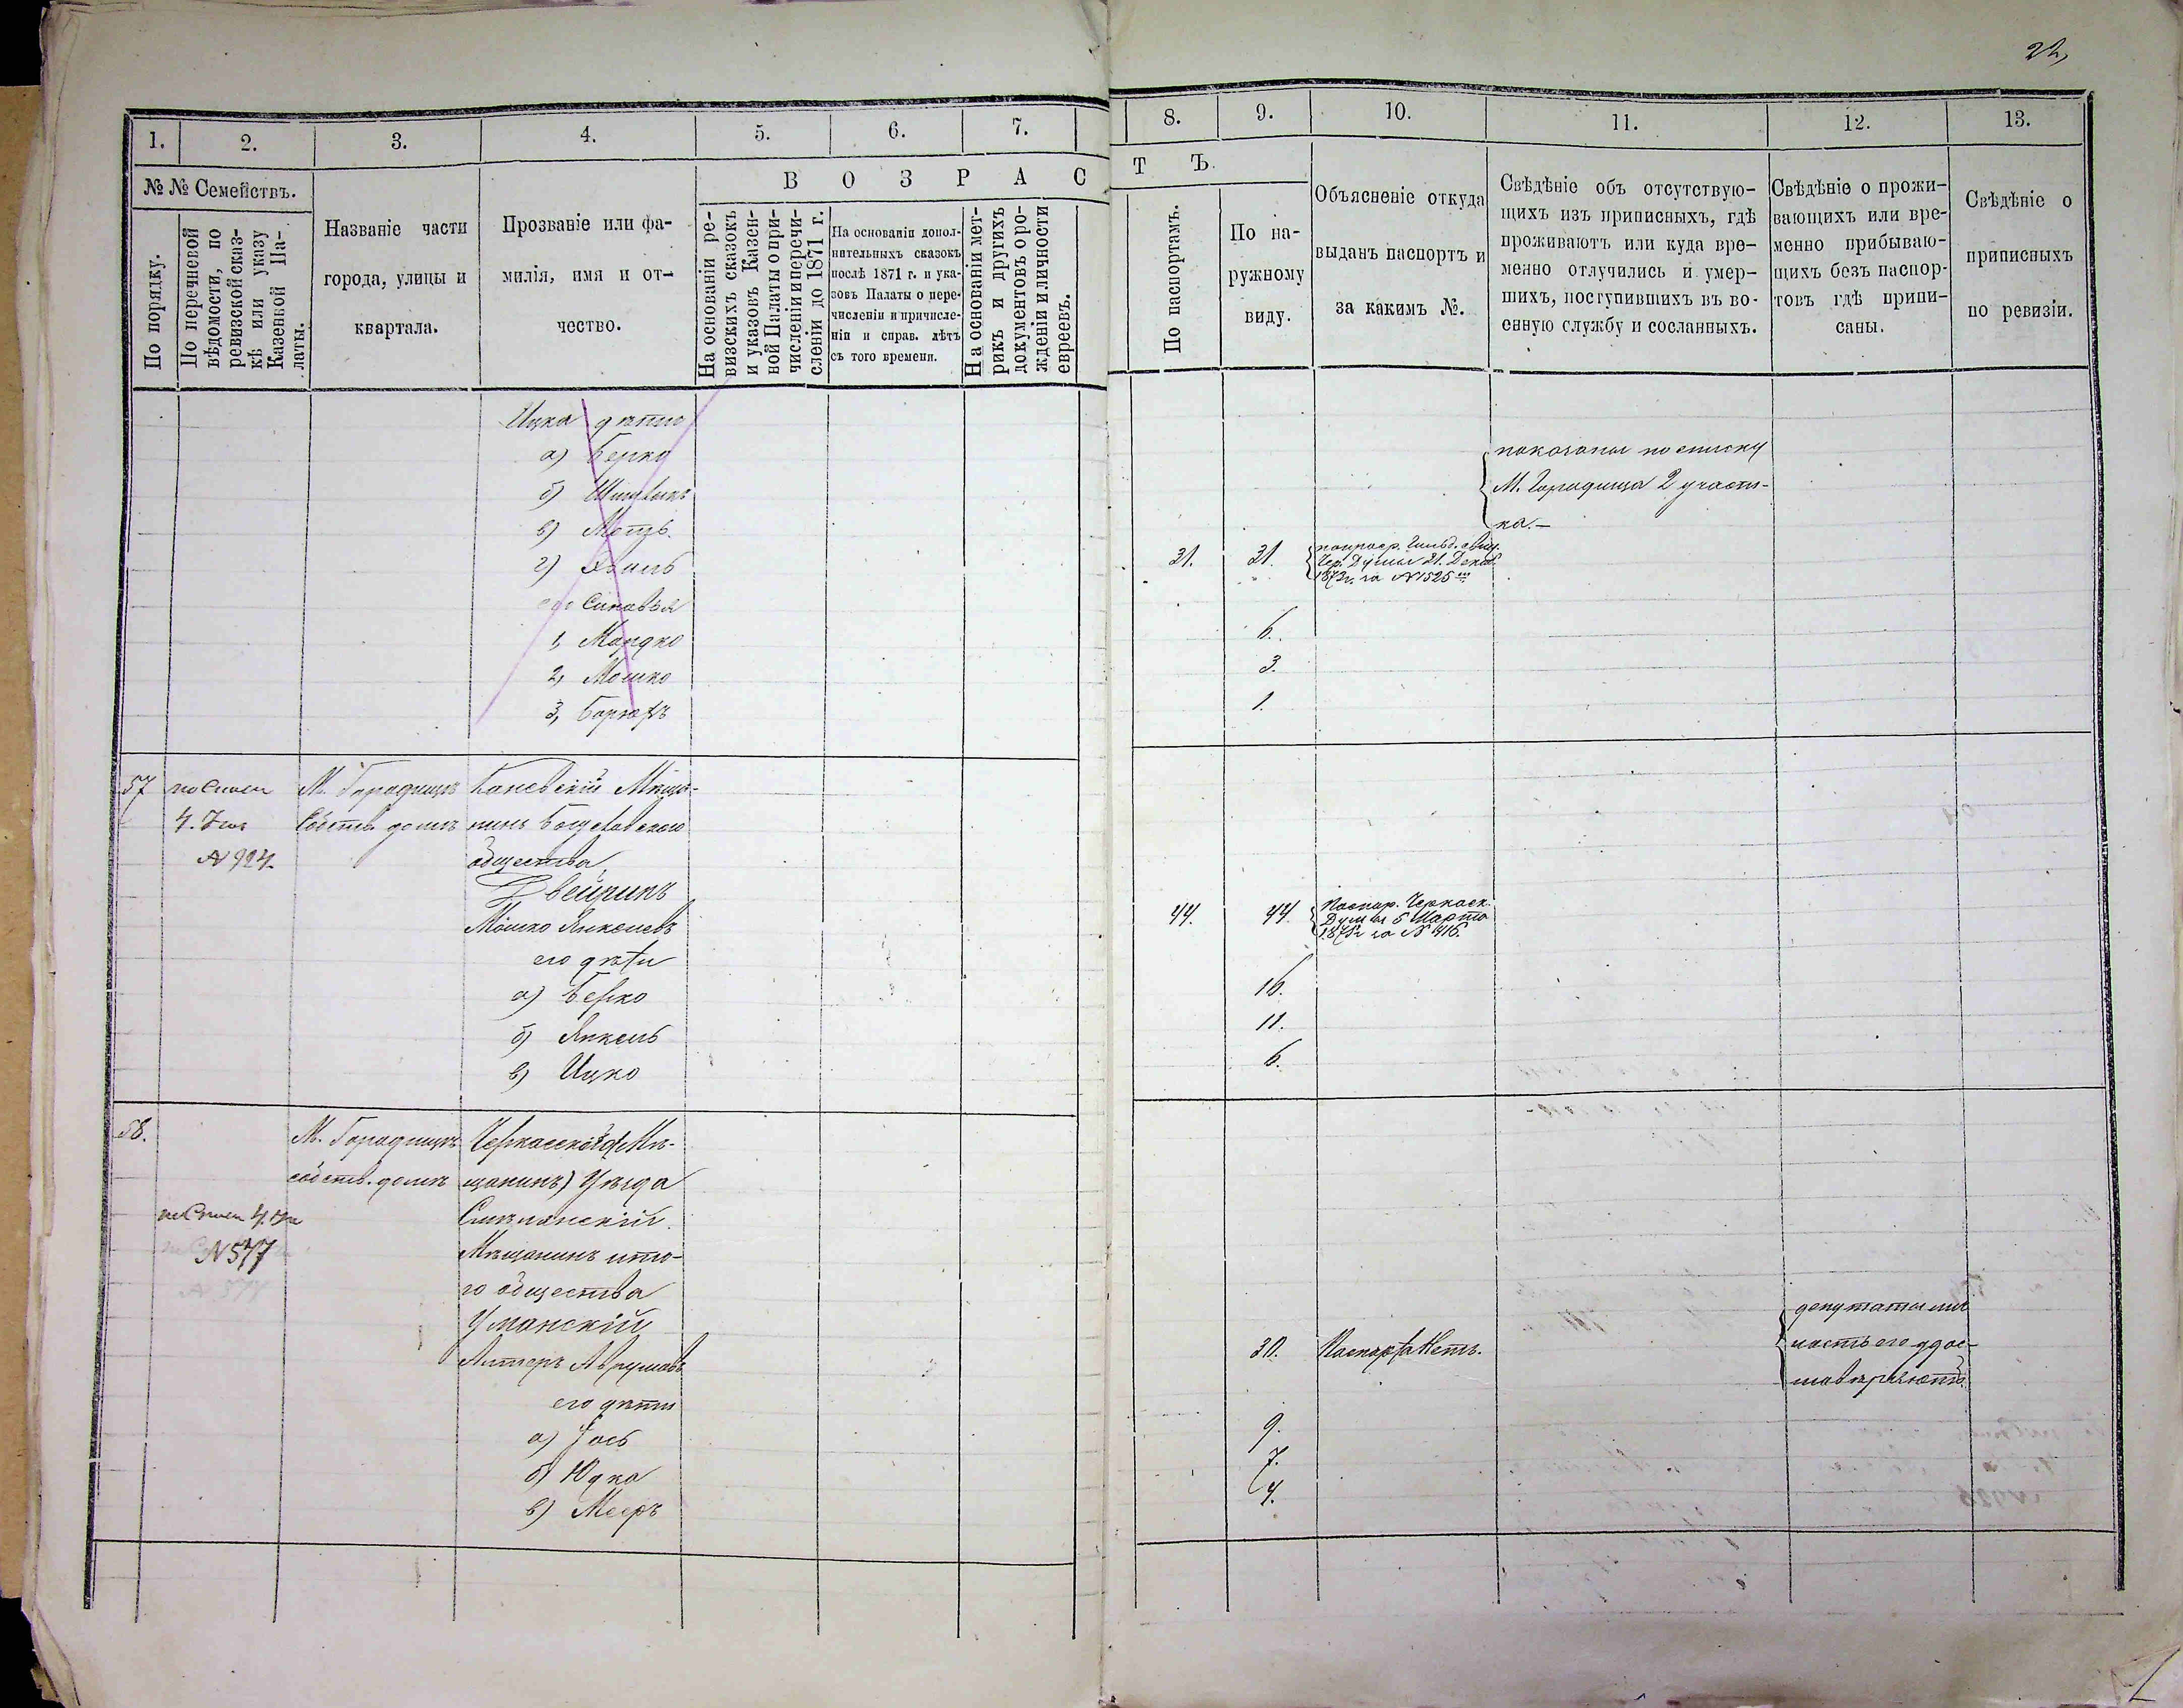 22,
1.
2.
3.
4.
5.
6.
7.
8.
9.
10.
11.
12.
13.
№ № Семействъ.
По порядку.
По перечневой
вѣдомости, по
ревизской сказ-
кѣ или указу
Казенной Па-
латы.
Названіе части
города, улицы и
квартала.
Прозваніе или фа-
милія, имя и от-
чество.
В О З Р А С
Т Ъ.
На основаніи ре-
визскихъ сказокъ
и указовъ Казен-
ной Палаты о при-
численіи и перечи-
сленіи до 1871 г.
На основаніи допол-
нительныхъ сказокъ
послѣ 1871 г. и ука-
зовъ Палаты о пере-
численіи и причисле-
ніи и справ. лѣтъ
съ того времени.
На основаніи мет-
рикъ и другихъ
документовъ о ро-
жденіи и личности
евреевъ.
По паспортамъ.
По на-
ружному
виду.
Объясненіе откуда
выданъ паспортъ и
за какимъ №.
Свѣдѣніе объ отсутствую-
щихъ изъ приписныхъ, гдѣ
проживаютъ или куда вре-
менно отлучились и умер-
шихъ, поступившихъ въ во-
енную службу и сосланныхъ.
Свѣдѣніе о прожи-
вающихъ или вре-
менно прибываю-
щихъ безъ паспор-
товъ гдѣ припи-
саны.
Свѣдѣніе о
приписныхъ
по ревизіи.
Ицка дѣти
а) Берко
б)
в)
г)
его Сыновья
1, Мордко
2, Мошко
3, Борухъ
показаны по списку
М. Городища 2 участ-
ка.-
31. 31.
Чер. Думы 21. Декаб.
187 г. за № 1525
6.
3.
1.
57
№ 924.
М. Городищѣ
Собств. домъ
Каневскій Мѣща-
нинъ Богуславскаго
общества
Цвейринъ
Мошко Янкелевъ
его дѣти
а) Берко
б) Янкель
в) Ицко
44. 44.
Паспор. Черкаск.
Думы 5 Марта
187 г за № 416.
16.
11.
6.
58.
N 577
М. Городищѣ
собств. домъ
Черкасскій (Мѣ-
щанинъ) Уѣзда
Смѣлянскій
Мѣщанинъ и то-
го общества
Уманскій
Аврумовъ
его дѣти
а) Іось
б) Юдка
в) Мееръ
30.
Паспорта Нетъ.
депутаты лич
ность его удос-
товѣряютъ
9.
7.
4.